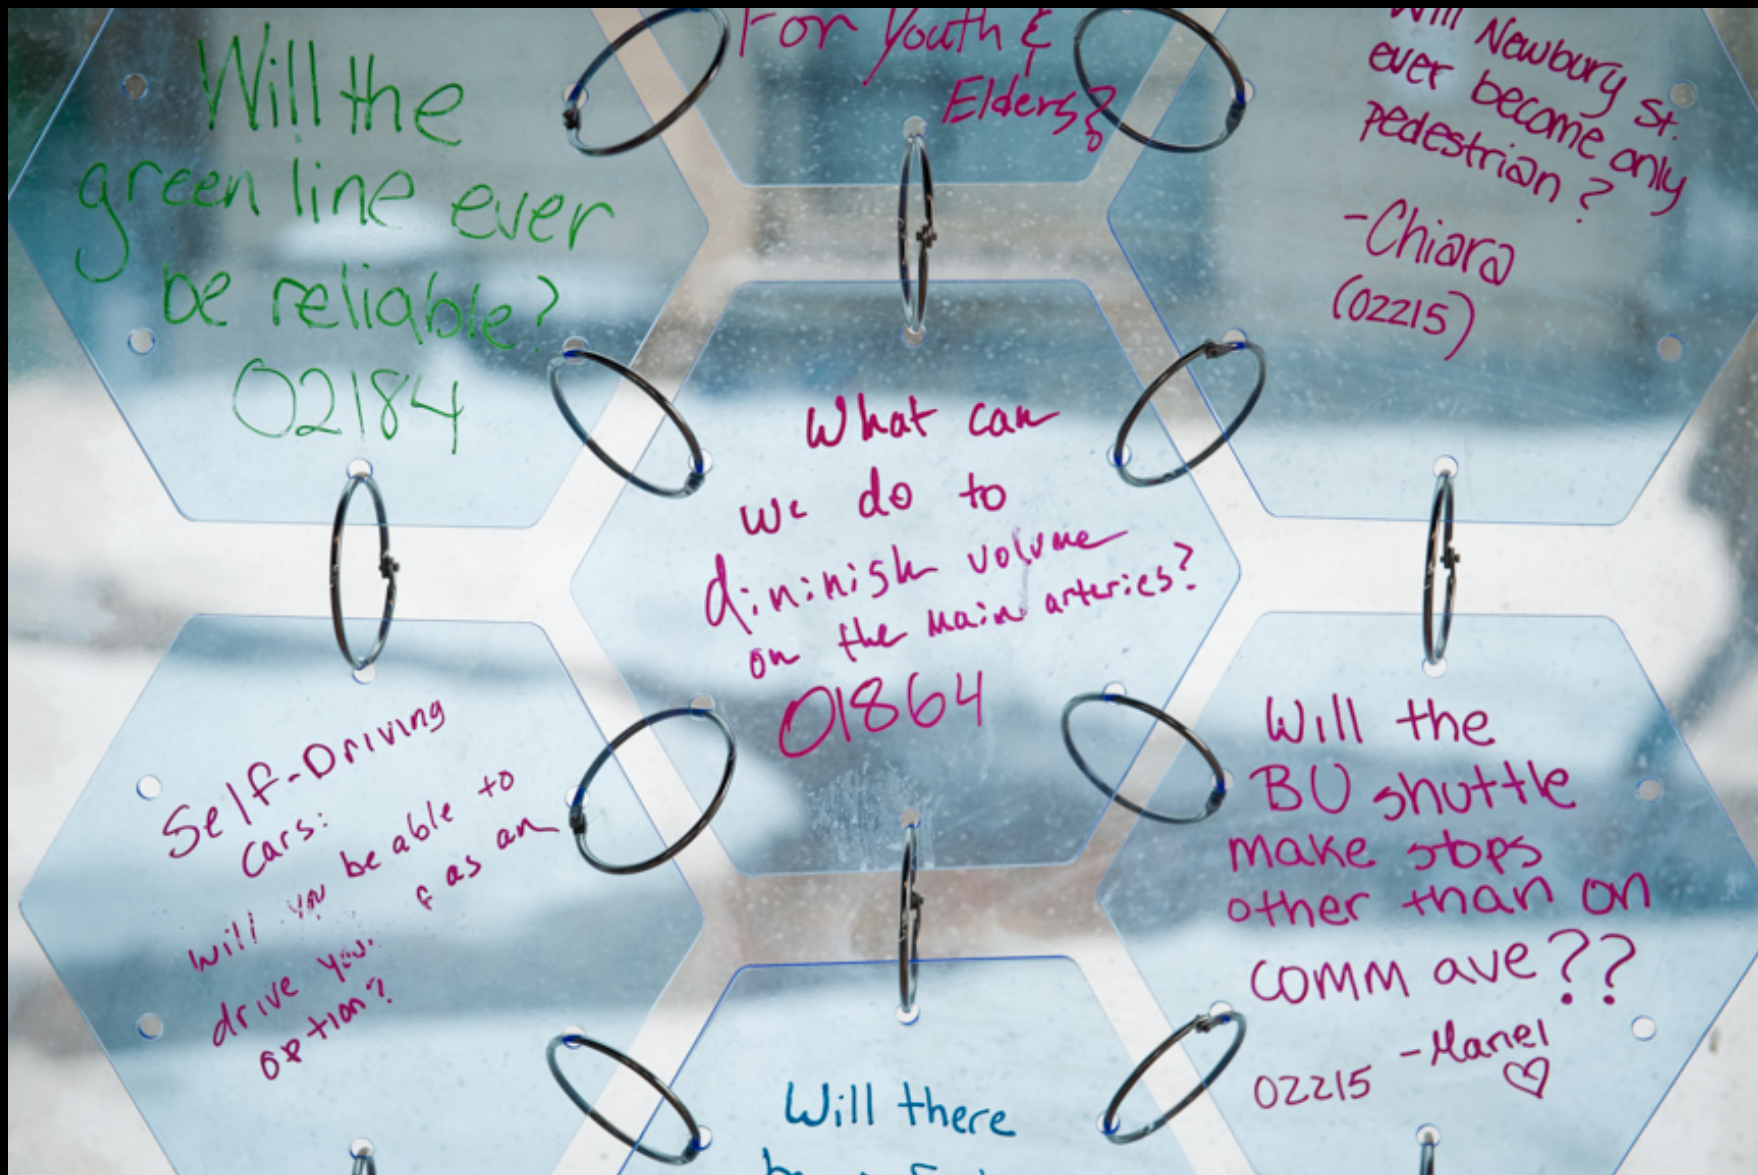 Will the
green line ever
be reliable?
02184
For Youth &
Elders?
Will Newbury St.
ever become only
pedestrian?
-Chiara
(02215)
What can
we do to
diminish volume
on the main arteries?
01864
Self-Driving
cars:
will you be able to
drive as an
option?
Will the
BU shuttle
make stops
other than on
comm ave??
02215 -Manel ♡
Will there